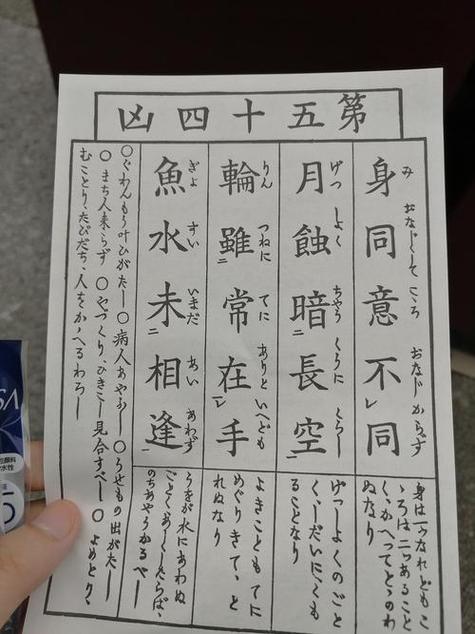 第五十四凶
身同意不同
み おなじくして こころ おなじからず
身は一つなれどもこ
ゝろは二つあること
く、かへってとゝのわ
ぬなり
月蝕暗長空
げつ しよく ちやう くうに くらし
げつしよくのごと
く、しだいに、くも
ることなり
輪雖常在手
りん つねに てに ありと いへども
よきこともてに
めぐりきて、と
れぬなり
魚水未相逢
ぎよ すい いまだ あい あわず
うをが水にあわぬ
ごとく、あしくしたらば、
のちあやうかるべし
〇ぐわんもう叶ひがたし〇病人あやふし〇うせもの出がたし
〇まち人来らず〇やづくり、ひきこし見合すべし〇よめとり、
むことり、たびだち、人をかゝへるわろし